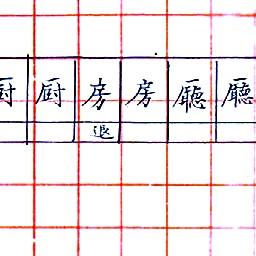 厨 厨 房 房 廳 廳
退